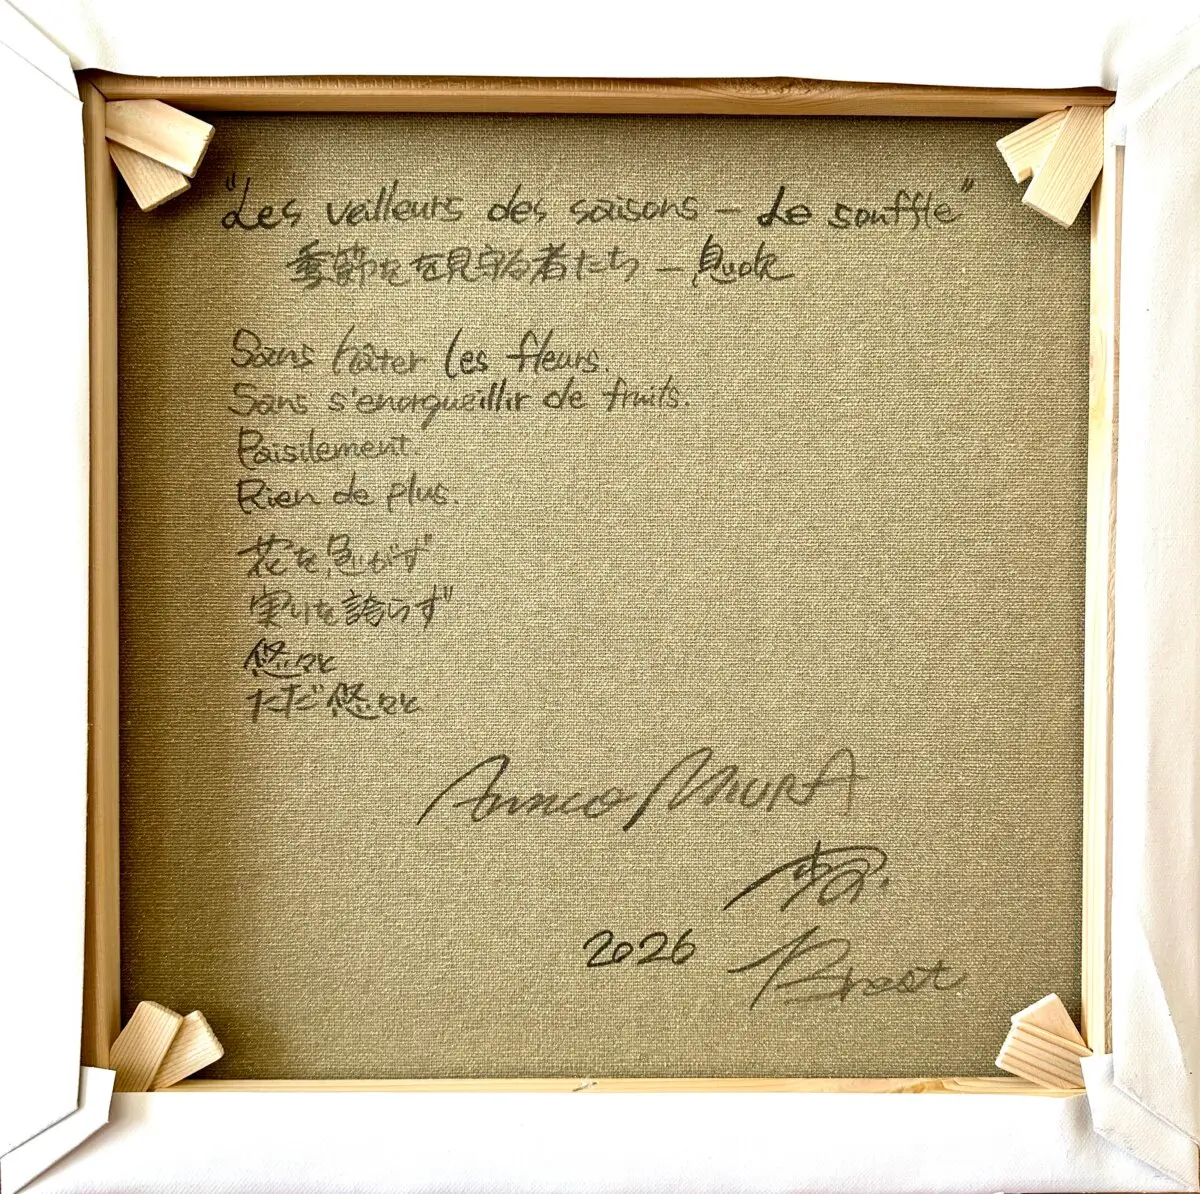 "Les veilleurs des saisons – Le souffle"
季節を見守る者たち – 息吹
Sans hâter les fleurs.
Sans s'enorgueillir de fruits.
Paisilement.
Rien de plus.
花を急がず
実りを誇らず
悠々と
ただ悠々と
MIURA
2026 Brest